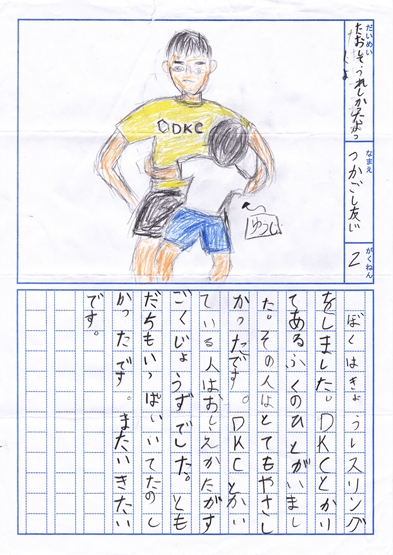 だいめい
なまえ
つかごし友
がくねん
2
DKC
ぼくはきょうレスリング
をしました。DKCとかい
てあるふくのひとがいまし
た。その人はとてもやさし
かったです。DKCとかい
ている人はおしえかたがす
ごくじょうずでした。とも
だちもいっぱいいてたのし
かったです。またいきたい
です。